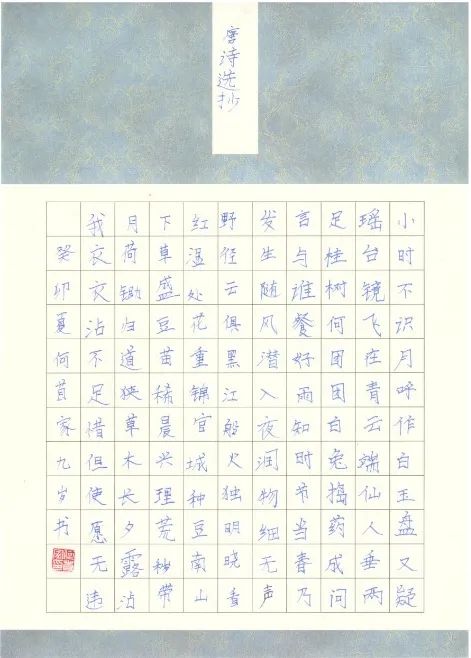 唐诗选抄
小时不识月呼作白玉盘又疑
瑶台镜飞在青云端仙人垂两
足桂树何团团白兔捣药成问
言与谁餐好雨知时节当春乃
发生随风潜入夜润物细无声
野径云俱黑江船火独明晓看
红湿处花重锦官城种豆南山
下草盛豆苗稀晨兴理荒秽带
月荷锄归道狭草木长夕露沾
我衣衣沾不足惜但使愿无违
癸卯夏何首家九岁书